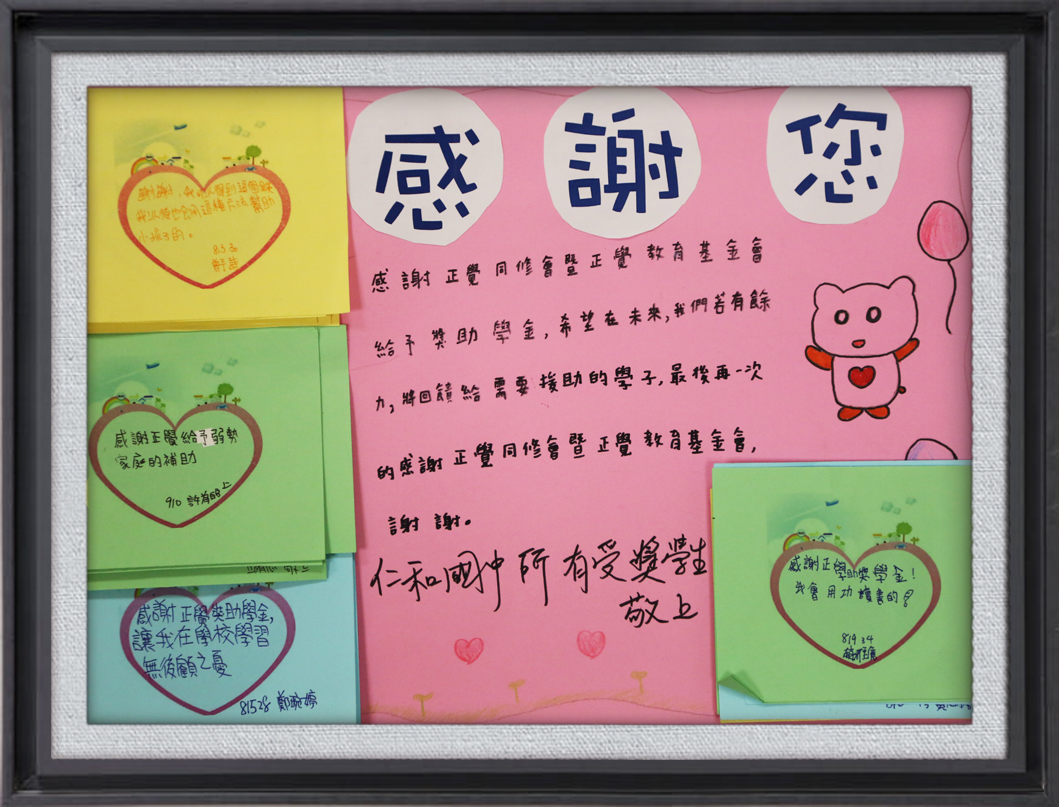 感謝您
感謝正覺同修會暨正覺教育基金會
給予獎助學金,希望在未來,我們若有餘
力,將回饋給需要援助的學子,最後再一次
的感謝正覺同修會暨正覺教育基金會,
謝謝。
仁和國中所有受獎學生
敬上
小孩子的。
感謝正覺給予弱勢
家庭的補助
910 上
感謝正覺獎助學金,
讓我在學校學習
無後顧之憂
81528 鄭婉婷
感謝正學助獎學金!
我會用功讀書的?
81934